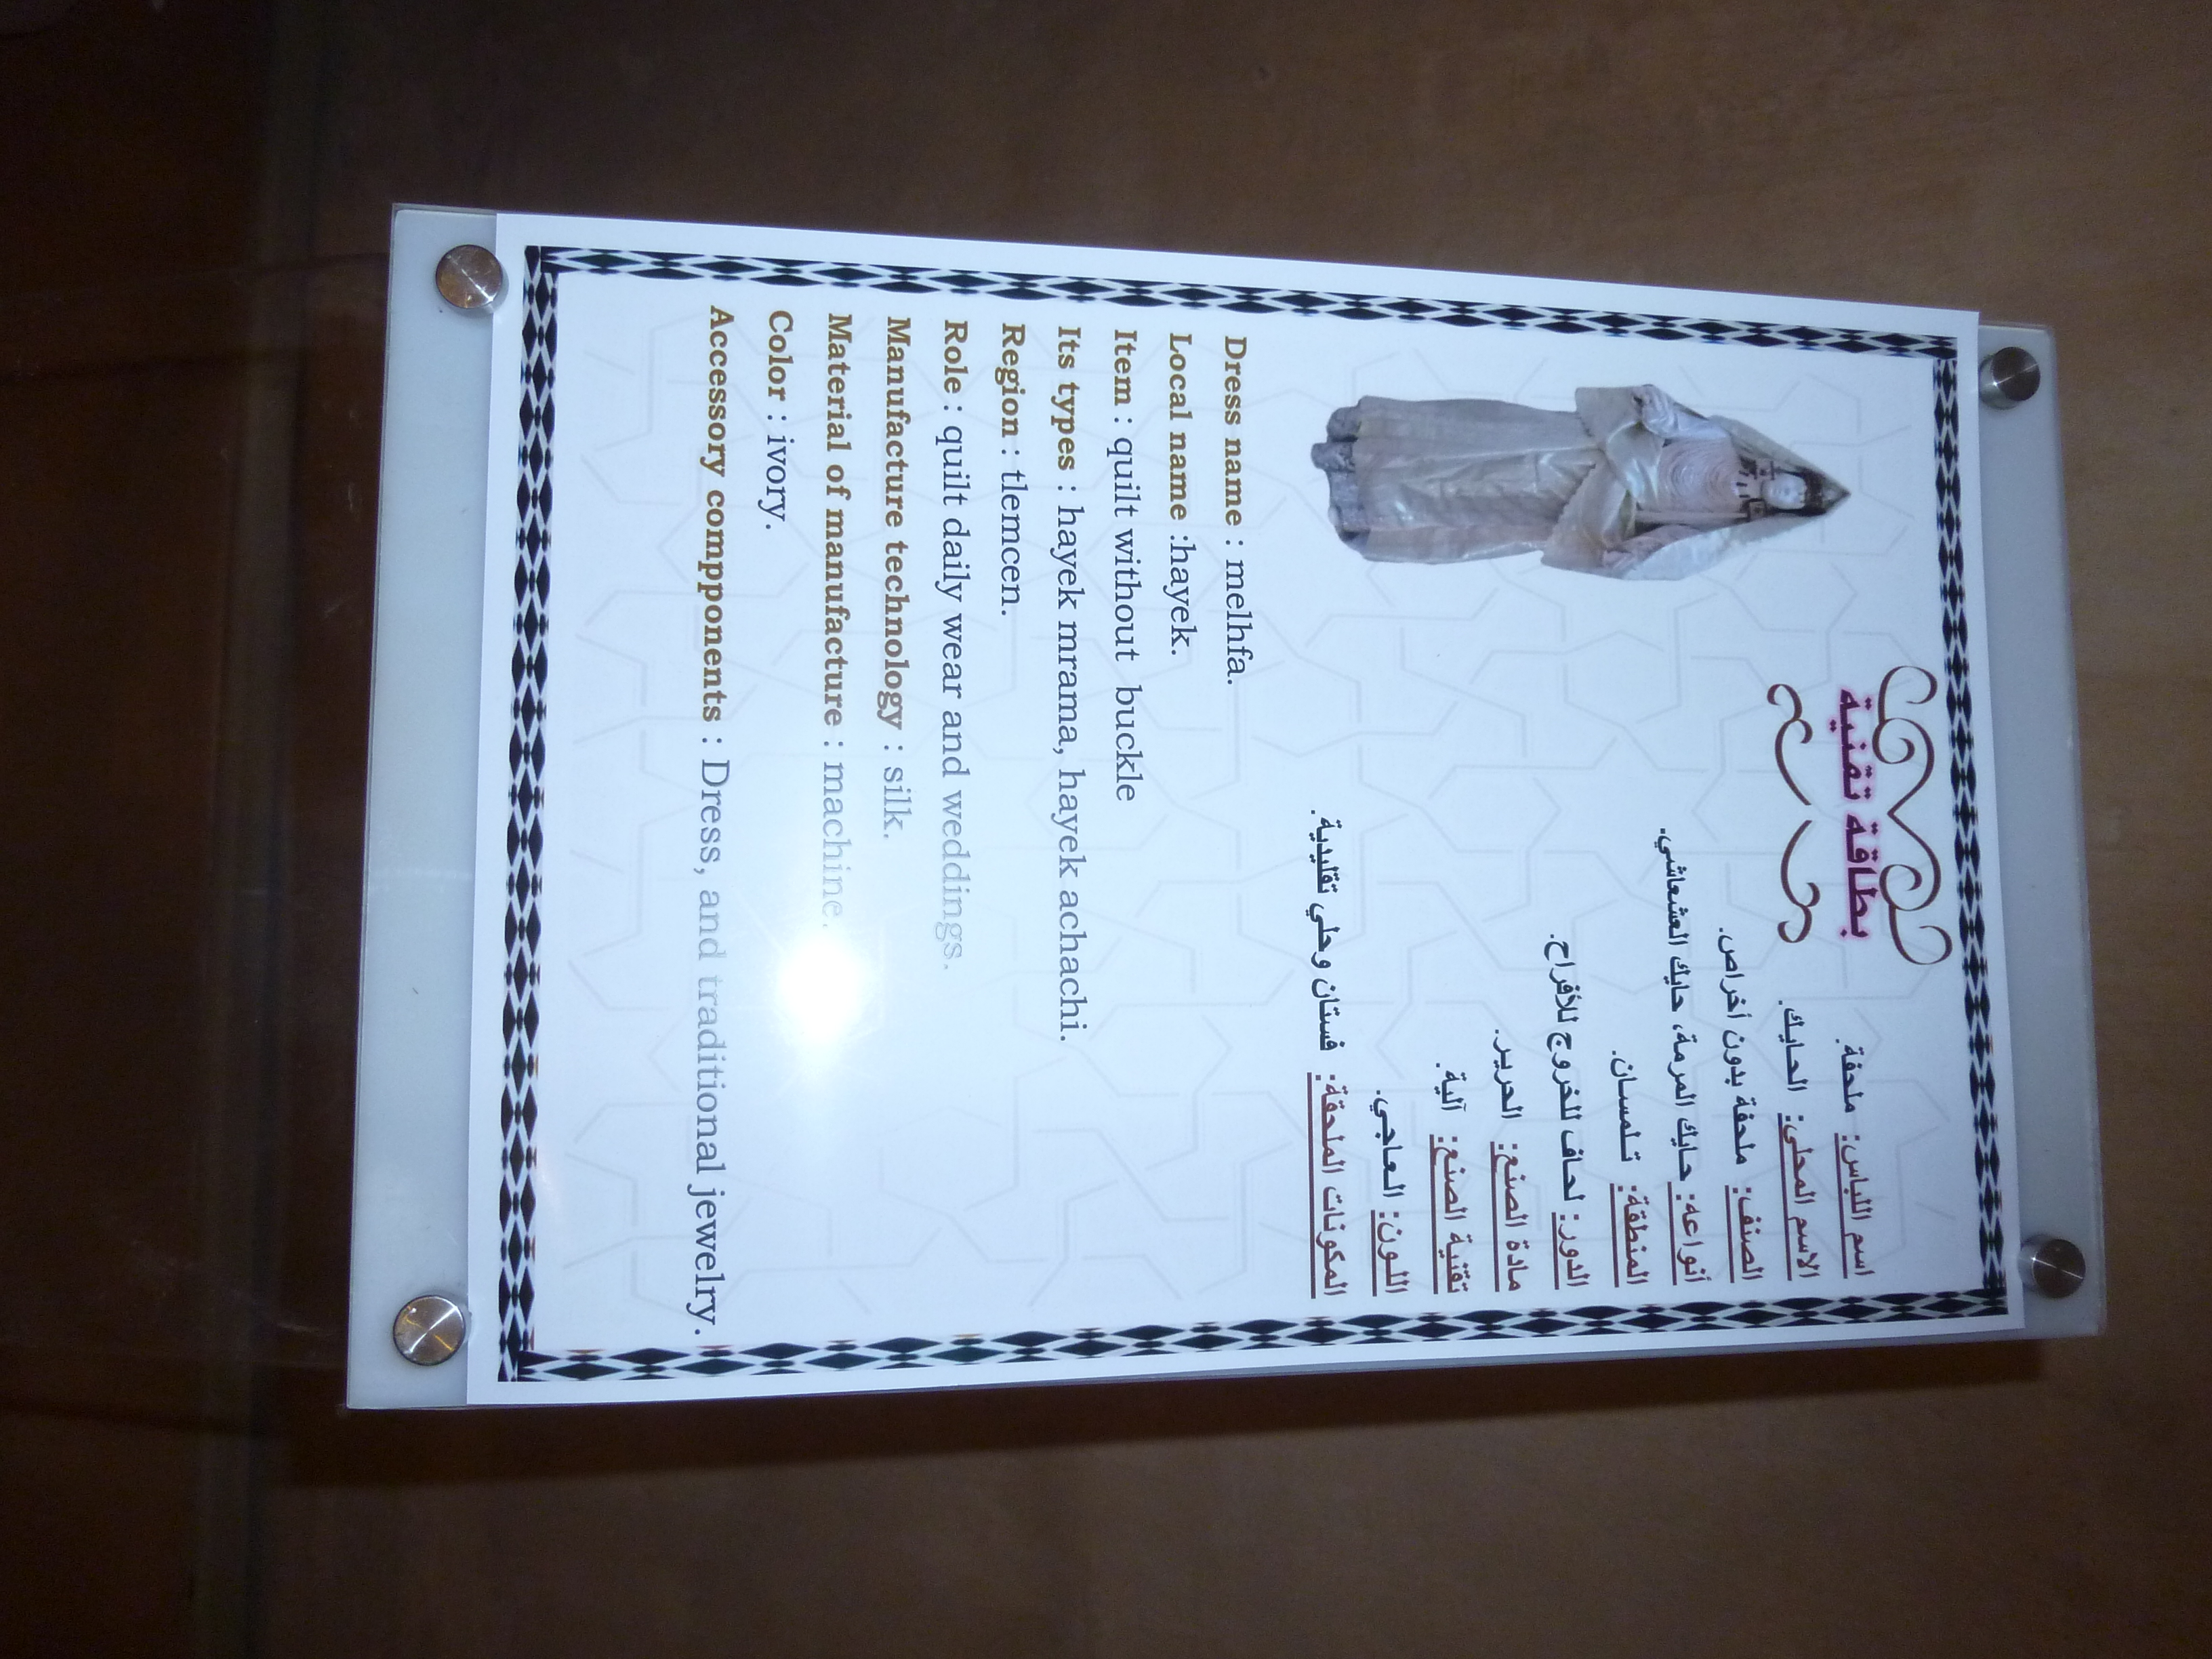 بطاقة تقنية
اسم اللباس: ملحفة.
الاسم المحلي: الحايك.
الصنف: ملحفة بدون أخراص.
أنواعه: حايك المرمة، حايك العشعاشي.
المنطقة: تلمسان.
الدور: لحاف للخروج للأفراح.
مادة الصنع: الحرير.
تقنية الصنع: آلية.
اللون: العاجي.
المكونات الملحقة: فستان وحلي تقليدية.
Dress name : melhfa.
Local name :hayek.
Item : quilt without buckle
Its types : hayek mrama, hayek achachi.
Region : tlemcen.
Role : quilt daily wear and weddings.
Manufacture technology : silk.
Material of manufacture : machine.
Color : ivory.
Accessory compponents : Dress, and traditional jewelry.